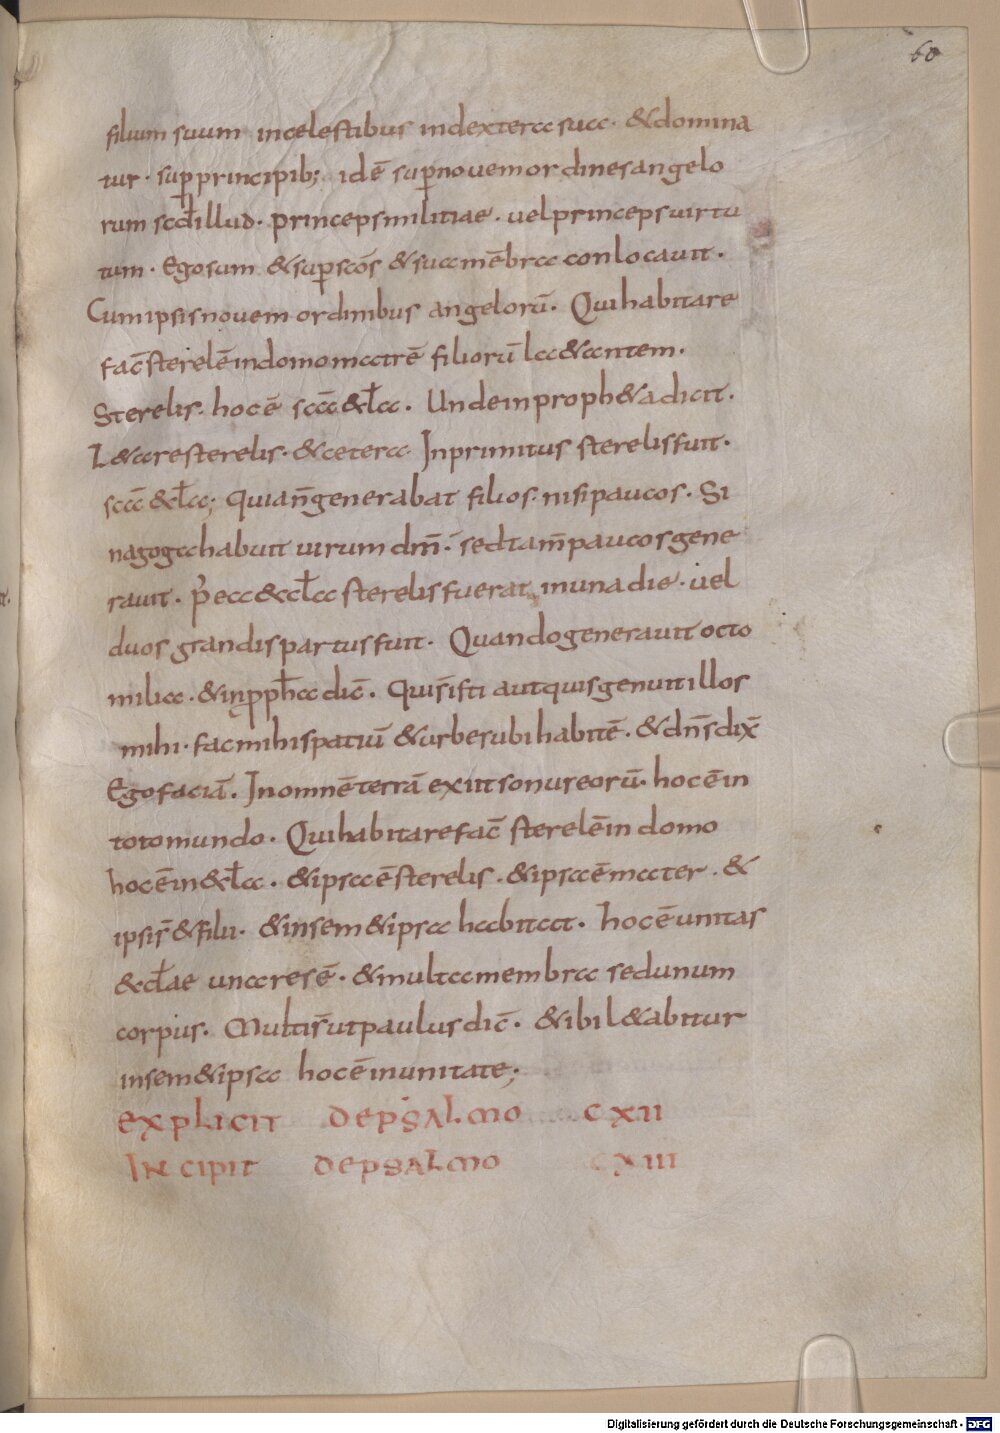 60
filium suum incelestibus indextera sua · &domina
tur · sup̱principib; idē sup̱nouemordinesangelo
rum scd̄illud · princepsmilitiae · uelprincepsuirtu
tum · Egosum &sup̱scōs &suamēbra conlocauit ·
Cumipsisnouem ordinibus angelorū · Quihabitare
fac̄sterelēindomomatrē filiorū laetantem ·
Sterelis · hocē sc̄a&cl̄a · Undeinproph&adicit ·
L&aresterelis · &cetera · Inprimitus sterelisfuit ·
sc̄a &cl̄a; quian̄generabat filios · nisipaucos · Si
nagogahabuit uirum dm̄ · sedtam̄paucosgene
rauit · p̄ea&cl̄a sterelisfuerat inunadie · uel
duos grandispartusfuit · Quandogenerauit octo
milia · &inpph̄a dic̄ · Quisīsti autquisgenuitillos
mihi · facmihispatiū &urbesubihabitē · &dn̄sdix̄
Egofaciā · Inomnēterrā exiitsonuseorū · hocēin
totomundo · Quihabitarefac̄ sterelēin domo
hocēin&cl̄a · &ipsaēsterelis · &ipsaēmater · &
ipsis̄&filii · &insem&ipsa habitat · hocēunitas
&cl̄ae unaresē · &multamembra sedunum
corpus · Multis̄utpaulusdic̄ · &ibil&abitur
insem&ipsa hocēinunitate;
EXPLICIT DEPSALMO CXII
INCIPIT DEPSALMO CXIII
Digitalisierung gefördert durch die Deutsche Forschungsgemeinschaft - DFG